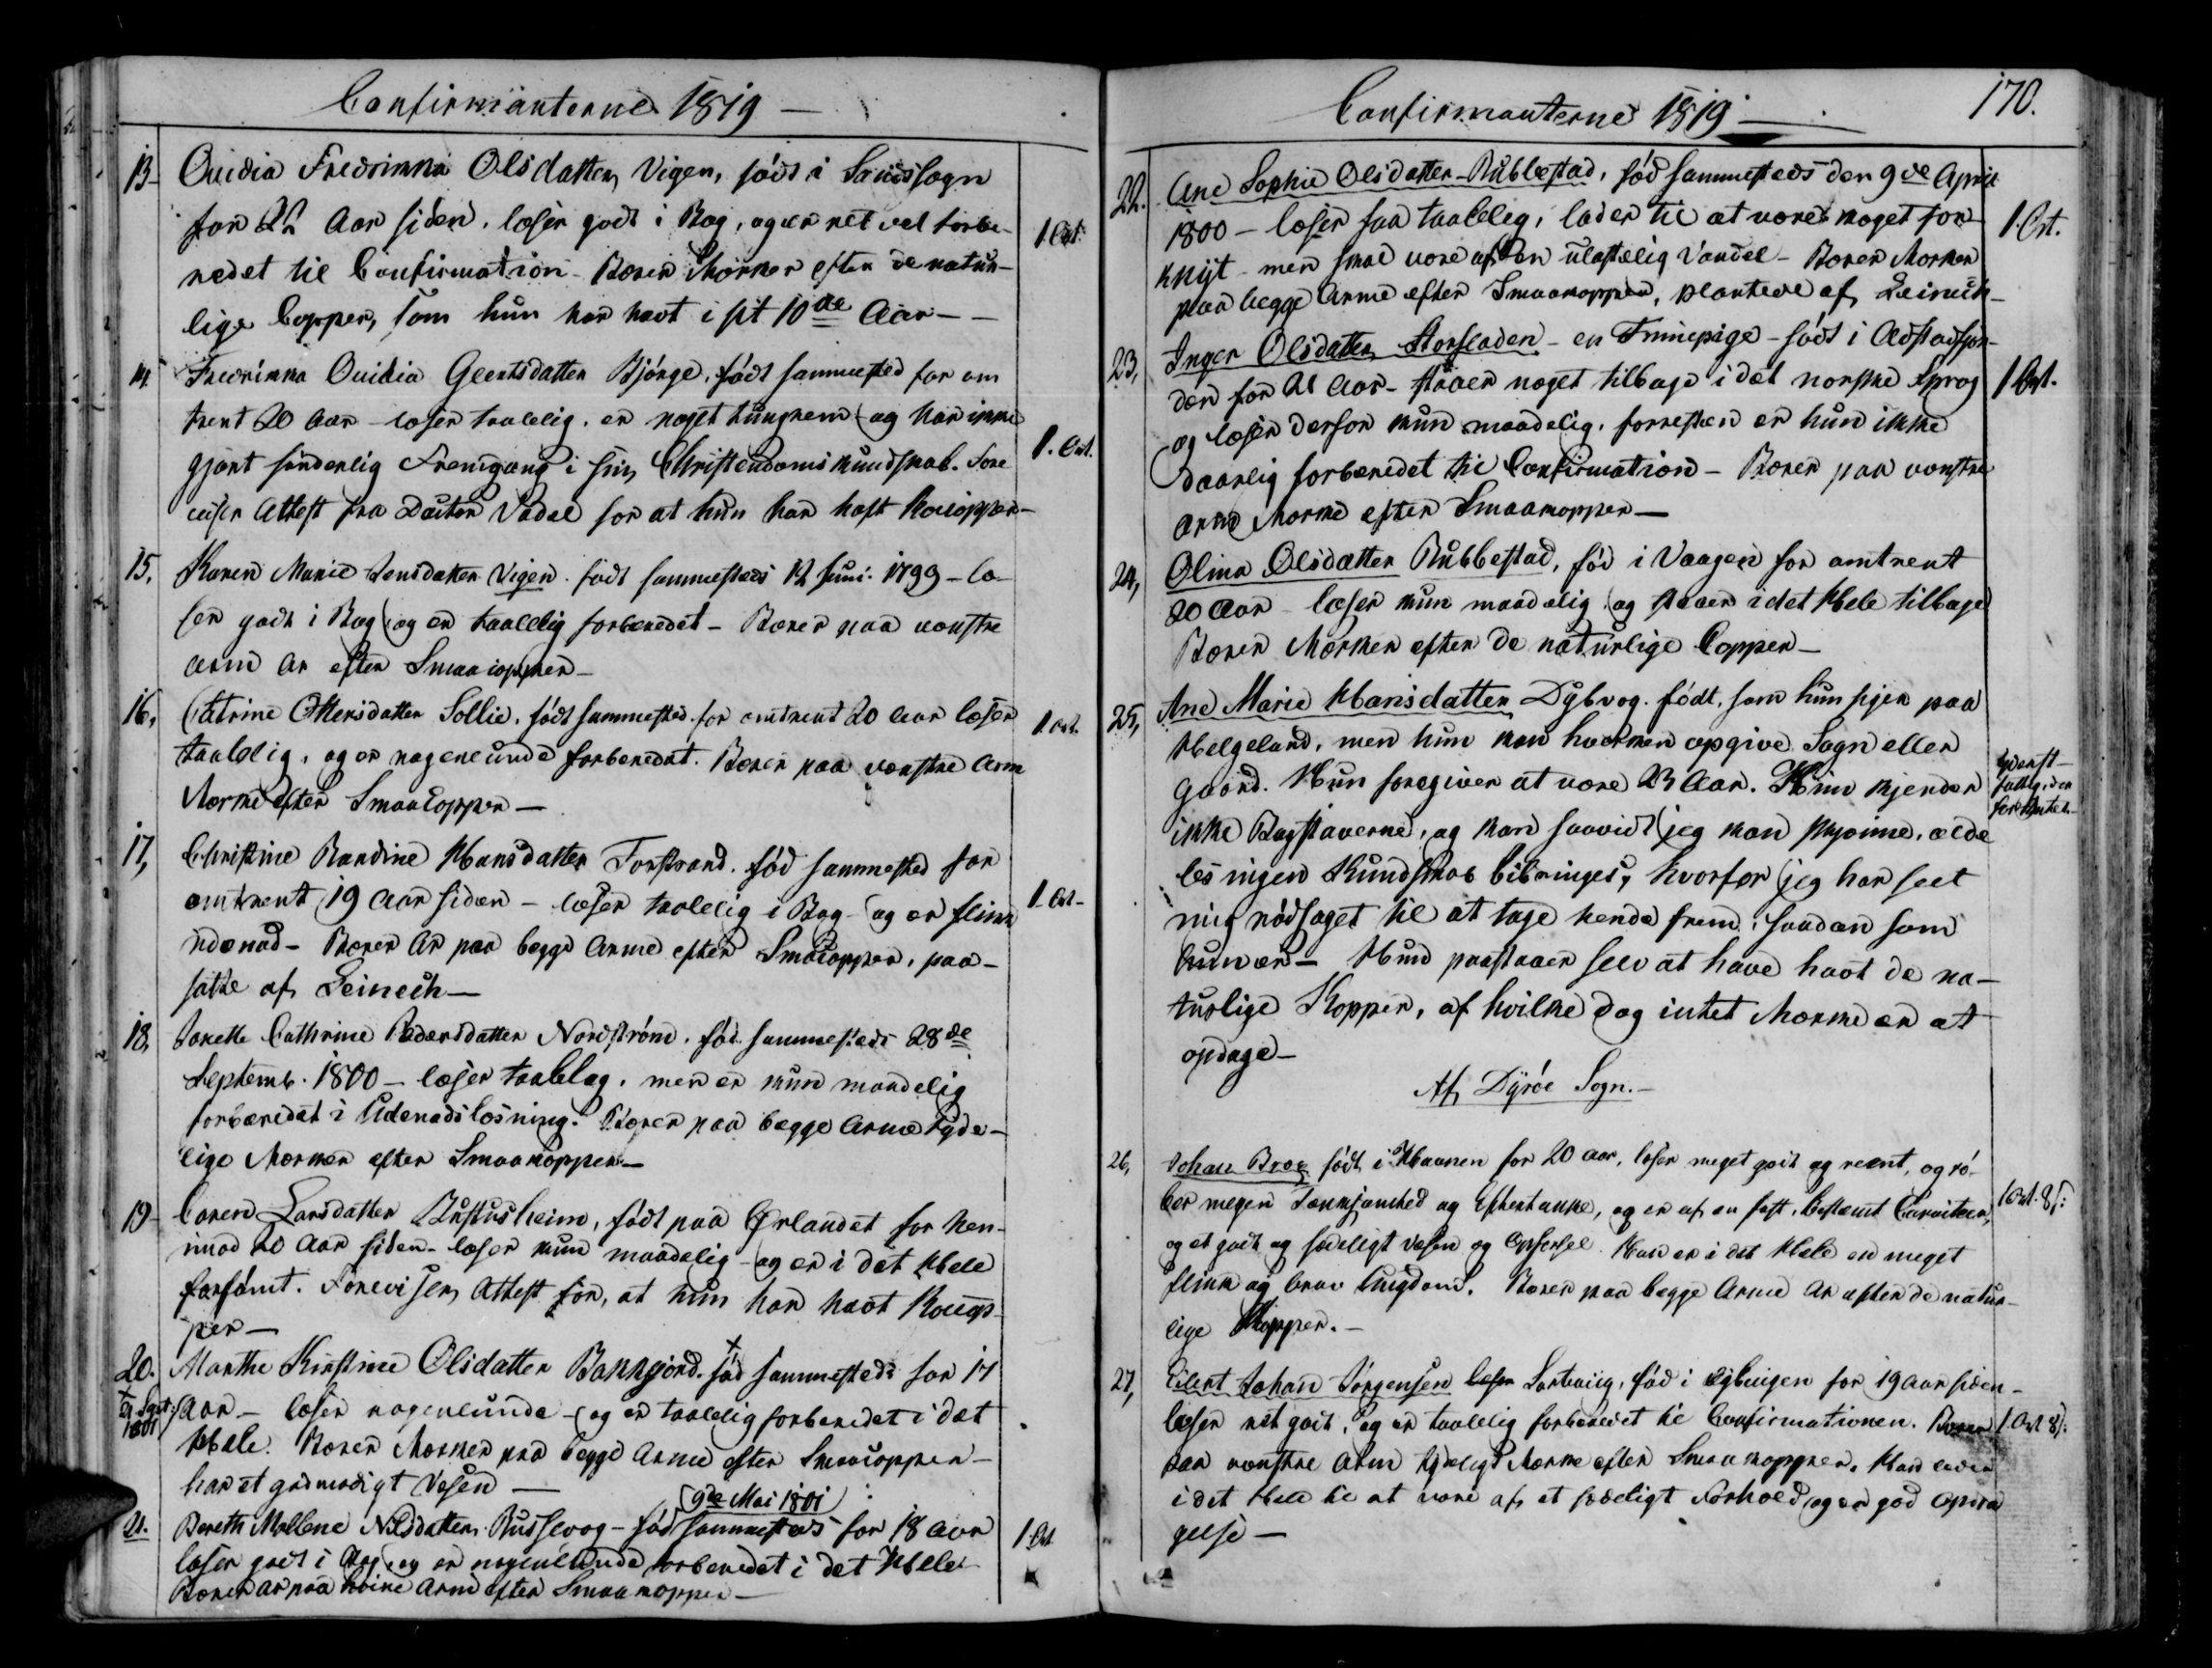 Confirmanterne 1819 —
13- Ovidia Fredrikka Olsdatter Vigen, født i Sandsogn
for 22 Aar siden, læser godt i Bog, og er ret vel forbe-
redet til Confirmation. Bærer Mærker efter de natur- 1 Ort.
lige Copper, som hun har havt i sit 10de Aar —
14. Fredrikka Ovidia Geertsdatter Bjorge, født sammested for om
trent 20 Aar - læser taalelig, er noget tungnem og har ikke
gjort synderlig Fremgang i sin Christendoms Kundskab. Fore 1. Ort.
viser Attest fra Doctor Vadel for at hun har haft Kocopper-
15. Karen Marie Jensdatter Vigen. født sammesteds 12 Juni 1799 - læ-
ser godt i Bog og er taalelig forberedet - Bærer paa venstre
arm Ar efter Smaacopper -
16. Catrine Ottersdatter Sollie, født sammested for omtrent 20 Aar læser 1 Ort.
taalelig, og er nogenlunde forberedet. Bærer paa venstre Arm
Mærke efter Smaacopper —
17, Christine Bardine Hansdatter Forstrand. fød sammested for
omtrent 19 Aar siden - læser taalelig i Bog - og er flink 1 Ort -
udenad - Bærer Ar paa begge Arme efter Smaacopper, paa-
satte af Leinech —
18, Janette Cathrine Pedersdatter Nordstrøm. fød sammesteds 28de
Septemb. 1800 - læser taalelig, men er kun maadelig
forberedet i Udenadslæsning. Bærer paa begge Arme tyde-
lige Mærker efter Smaakopper —
19- Caren Larsdatter Justusheim, født paa Ørlandet for hen-
imod 20 Aar siden - læser kun maadelig - og er i det Hele
forsømt. Foreviser Attest for, at hun har havt Koeop-
per —
20. Marthe Kirstine Olsdatter Bakkejord. + fød sammesteds for 17
+ 21 Sept: 1801 Aar - læser nogenlunde - og er taalelig forberedet i det
Hele. Bærer Mærker paa begge Arme efter Smaacopper -
har et godmodigt Væsen —
(9de Mai 1801)
21. Bereth Mallene Nilsdatter Russevog - fød sammesteds for 18 Aar 1 Ort
læser godt i Bog, og er nogenlunde forberedet i det Hele
Bærer Ar paa høire Arm efter Smaakopper —
Confirmanterne 1819 — 170.
22. Ane Sophie Olsdatter Rubbestad, fød sammesteds den 9de April
1800 - læser saa taalelig, lader til at være noget for 1. Ort.
knyt - men skal være af en ulastelig Vandel - Bærer Mærker
paa begge Arme efter Smaakopper, plantede af Leinech -
23, Inger Olsdatter Storsladen - en Finnepige - født i
den for 21 Aar - staaer noget tilbage i det norske Sprog 1 Ort.
og læser derfor kun maadelig, forresten er hun ikke
daarlig forberedet til Confirmation - Bærer paa venstre
Arm Mærke efter Smaakopper —
24, Olina Olsdatter Rubbestad, fød i Vaagen for omtrent
20 Aar - læser kun maadelig og staaer i det Hele tilbage
Bærer Mærker efter de naturlige Copper —
25, Ane Marie Hansdatter Dybvog. født, som hun siger paa
Helgeland, men hun kan hverken opgive Sogn eller
Gaard. Hun foregiver at være 23 Aar. Hun kjender
ikke Bogstaverne, og kan saavidt jeg kan skjønne, alde
les ingen Kundskab bibringes, hvorfor jeg har seet
mig nødsaget til at tage hende frem, saadan som
hun er - Hun paastaaer selv at have havt de na-
turlige Kopper, af hvilke dog intet Mærke er at
opdage —
Af Dyrøe Sogn. —
26, Johan Brox født i Haanen for 20 Aar, læser meget godt og reent, og rø- 1 Ort. 8 s:
ber megen Tænksomhed og Eftertanke, og er af en fast, bestemt Caracteer,
og et godt og sædeligt Væsen og Opførsel. Han er i det Hele en meget
flink og brav Ungdom. Bærer paa begge Arme Ar efter de natur-
lige Kopper. —
27, Eilert Johan Jørgensen læser Sørtevig, fød i for 19 Aar siden -
læser ret godt, og er taalelig forberedet til Confirmationen. Bærer 1 Ort 8 s:
paa venstre Arm tydeligt Mærke efter Smaakopper. Han lader
i det Hele til at være af et sædeligt Forhold og en god Opdra
gelse —